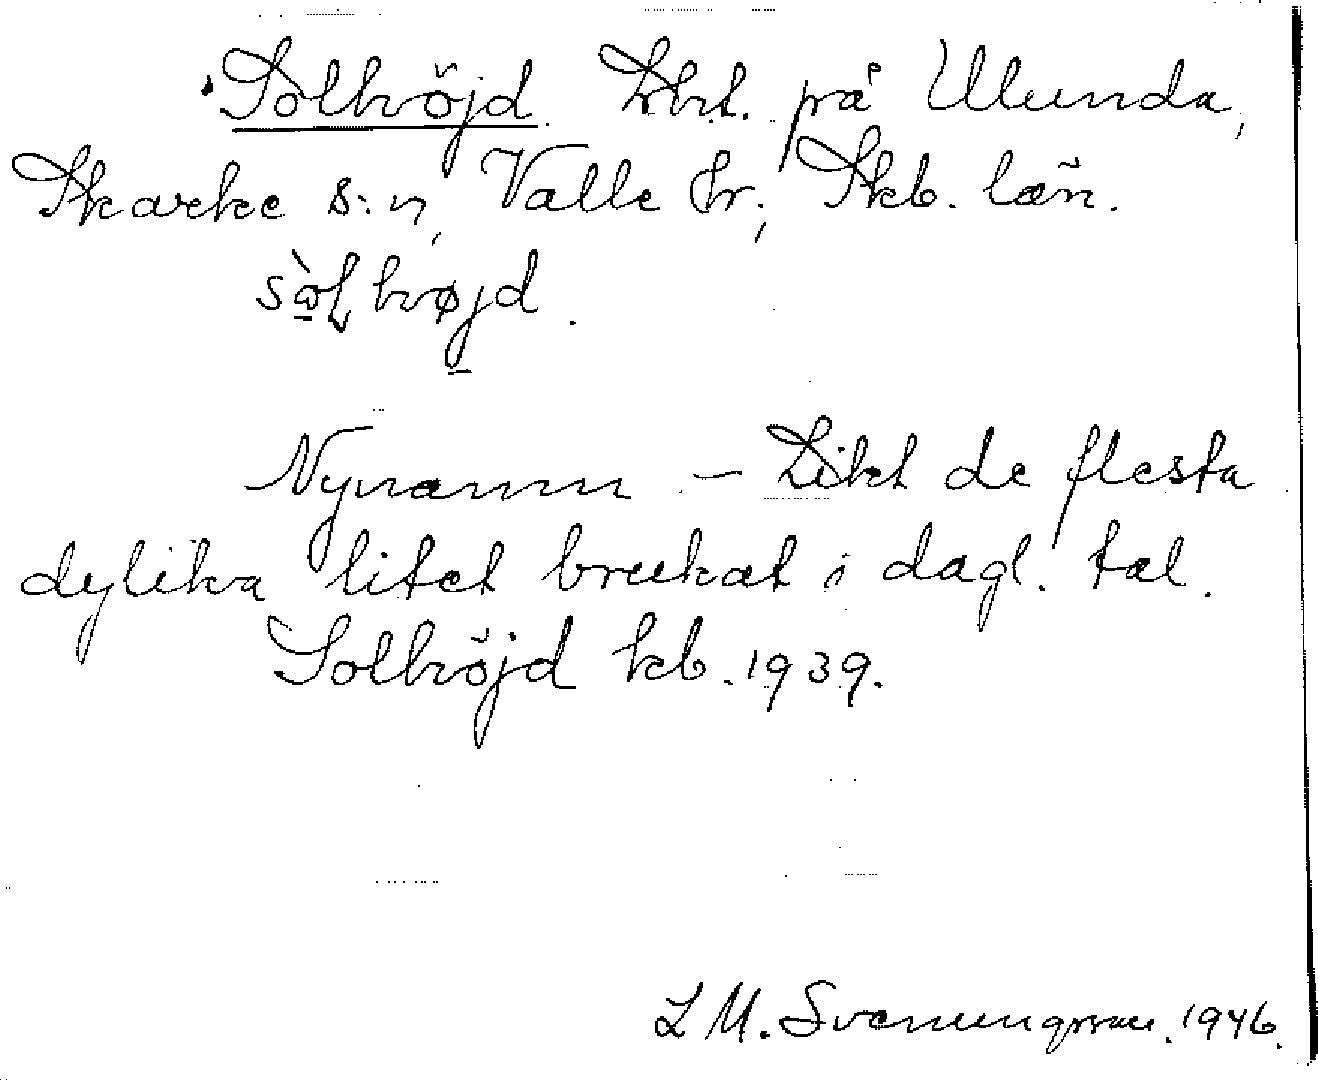 Solhöjd. Lht. på Ulunda,
Skarke s:n, Valle hr., Skb. län.
sòlhøjd.
Nynamn – Likt de flesta
dylika litet brukat i dagl. tal.
Solhöjd kb. 1939.
L M. Svenungsson. 1946.